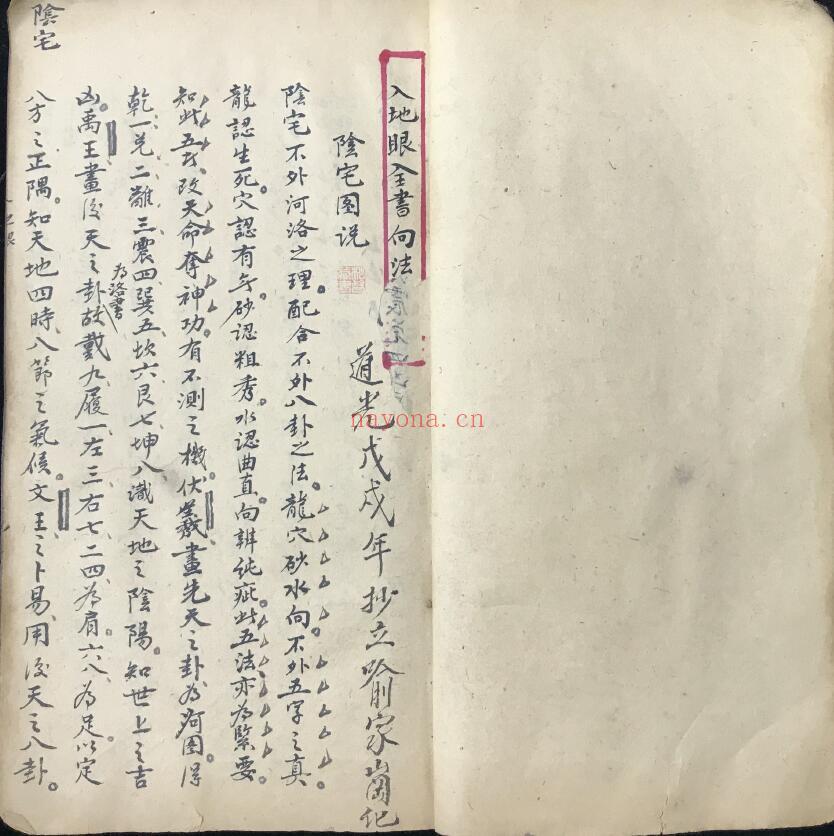 入地眼全書向法
道光戊戌年抄立喻家崗記
陰宅图说
陰宅不外河洛之理。配合不外八卦之法。龍穴砂水向。不外五字之真。
龍認生死穴認有无。砂認粗秀。水認曲直。向辨純疵。此五法亦为緊要。
知此五者。改天命奪神功。有不測之機。伏羲畫先天之卦。为河图。得
乾一兑二離三震四巽五坎六艮七坤八。識天地之陰陽。知世上之吉
凶。禹王畫後天之卦。为洛書故戴九履一左三右七。二四为肩。六八为足。以定
八方之正隅。知天地四時八節之氣候。文王之卜易。用後天之八卦。
陰宅
nayona.cn